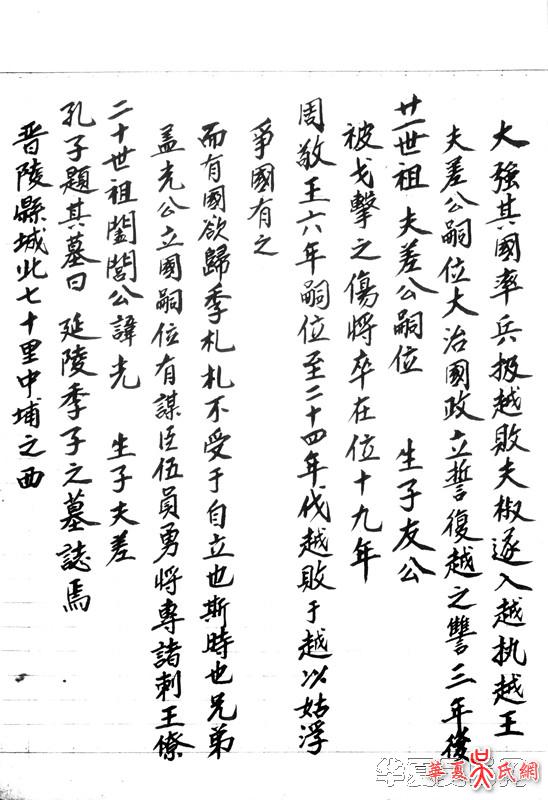 晋陵縣城北七十里中埔之西
孔子題其墓曰 延陵季子之墓誌焉
二十世祖闔閭公諱光 生子夫差
盖光公立國嗣位有謀臣伍員勇將專諸刺王僚
而有國欲歸季札札不受于自立也斯時也兄弟
爭國有之
周敬王六年嗣位至二十四年伐越敗于越以姑浮
被戈擊之傷將卒在位十九年
廿一世祖夫差公嗣位 生子友公
夫差公嗣位大治國政立誓復越之讐三年後
大強其國率兵报越敗夫椒遂入越执越王
華夏吴氏網